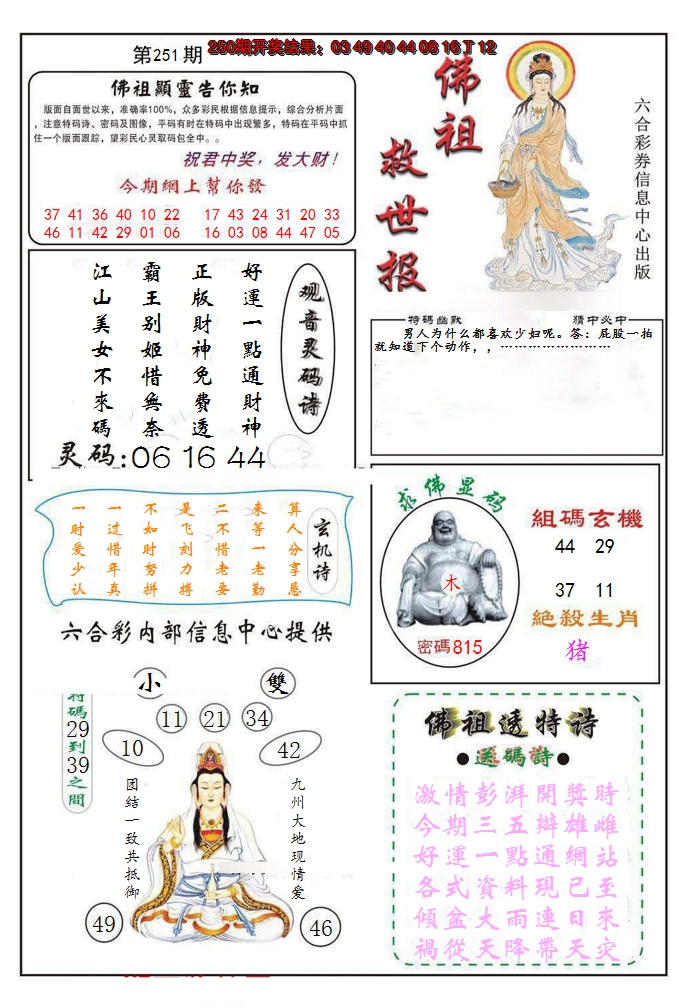 第251期
250期开奖结果：03 49 40 44 08 16 T 12
佛祖顯靈告你知
版面自面世以来，准确率100%，众多彩民根据信息提示，综合分析片面
，注意特码诗、密码及图像，平码有时在特码中出现繁多，特码在平码中抓
住一个版面跟踪，望彩民心灵取码包全中。。
祝君中奖，发大财！
今期網上幫你發
37 41 36 40 10 22 17 43 24 31 20 33
46 11 42 29 01 06 16 03 08 44 47 05
佛祖
救世报
六合彩券信息中心出版
观音灵码诗
好運一點通財神
正版財神免費透
霸王别姬惜無奈
江山美女不來碼
灵码:06 16 44
特碼幽默
猜中必中
男人为什么都喜欢少妇呢。答：屁股一拍
就知道下个动作，，……………………
玄机诗
算人分享恳
来等一老勤
二不惜老要
是飞刻力搏
不如时努拼
一过惜年真
一时爱少认
六合彩内部信息中心提供
求佛显码
木
密碼815
組碼玄機
44 29
37 11
絶殺生肖
猪
小
雙
特碼29到39之間
11 21 34
10
42
团结一致共抵御
九州大地现情爱
49
46
佛祖透特诗
●送碼詩●
激情彭湃開獎時
今期三五辯雄雌
好運一點通網站
各式資料現已至
傾盆大雨連日來
禍從天降帶天灾